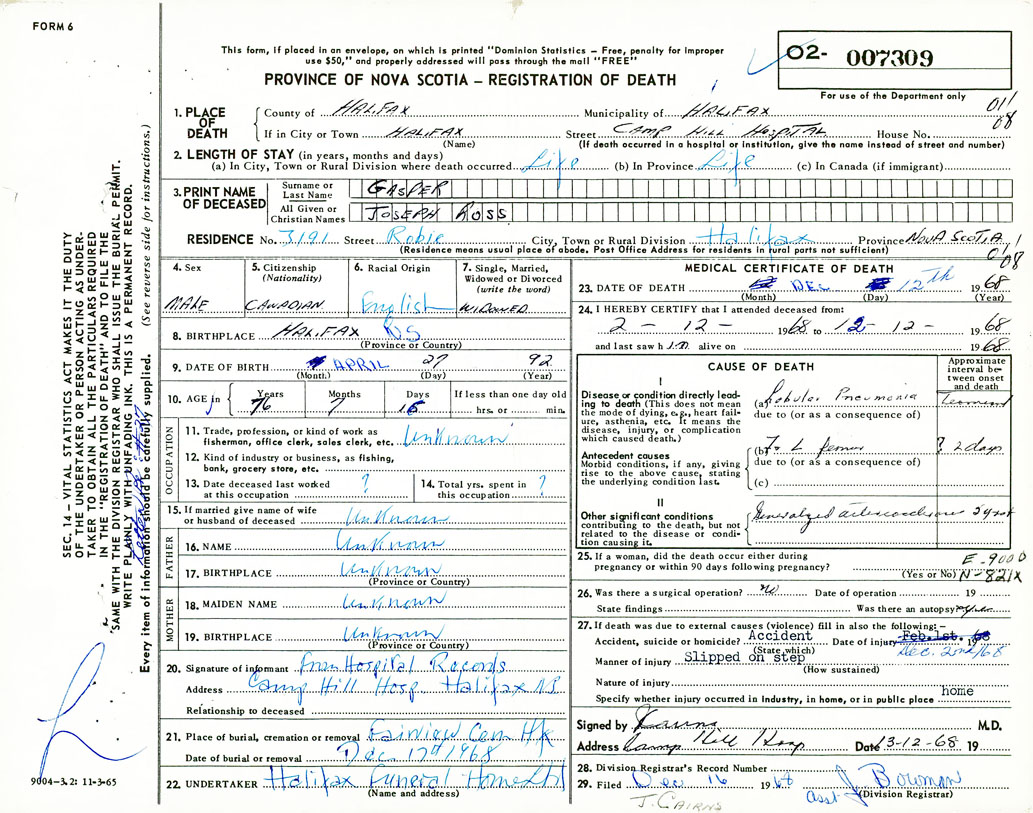 FORM 6
This form, if placed in an envelope, on which is printed "Dominion Statistics – Free, penalty for improper
use $50," and properly addressed will pass through the mail "FREE"
02- 007309
PROVINCE OF NOVA SCOTIA – REGISTRATION OF DEATH
For use of the Department only
011
08
1. PLACE OF DEATH
County of HALIFAX Municipality of HALIFAX
If in City or Town HALIFAX Street CAMP HILL HOSPITAL House No.
(Name) (If death occurred in a hospital or institution, give the name instead of street and number)
2. LENGTH OF STAY (in years, months and days)
(a) In City, Town or Rural Division where death occurred Life (b) In Province Life (c) In Canada (if immigrant)
3. PRINT NAME OF DECEASED
Surname or Last Name GASPER
All Given or Christian Names JOSEPH ROSS
RESIDENCE No. 3191 Street Robie City, Town or Rural Division Halifax Province NOVA SCOTIA
(Residence means usual place of abode. Post Office Address for residents in rural parts not sufficient)
4. Sex MALE
5. Citizenship (Nationality) CANADIAN
6. Racial Origin English
7. Single, Married, Widowed or Divorced (write the word) WIDOWED
8. BIRTHPLACE HALIFAX N.S.
(Province or Country)
9. DATE OF BIRTH APRIL 27 92
(Month) (Day) (Year)
10. AGE in Years Months Days If less than one day old
76 7 15 hrs. or min.
OCCUPATION
11. Trade, profession, or kind of work as
fisherman, office clerk, sales clerk, etc. Unknown
12. Kind of industry or business, as fishing,
bank, grocery store, etc.
13. Date deceased last worked
at this occupation ?
14. Total yrs. spent in
this occupation ?
15. If married give name of wife
or husband of deceased Unknown
FATHER
16. NAME Unknown
17. BIRTHPLACE Unknown
(Province or Country)
MOTHER
18. MAIDEN NAME Unknown
19. BIRTHPLACE Unknown
(Province or Country)
20. Signature of informant From Hospital Records
Address Camp Hill Hosp. Halifax NS
Relationship to deceased
21. Place of burial, cremation or removal Fairview Cem Hfx
Date of burial or removal Dec. 17th 1968
22. UNDERTAKER Halifax Funeral Home Ltd
(Name and address)
MEDICAL CERTIFICATE OF DEATH
23. DATE OF DEATH DEC 12th 1968
(Month) (Day) (Year)
24. I HEREBY CERTIFY that I attended deceased from:
2 - 12 - 1968 to 12 - 12 - 1968
and last saw h alive on 1968
CAUSE OF DEATH
Approximate interval between onset and death
I
Disease or condition directly leading to death (This does not mean
the mode of dying, e.g., heart failure, asthenia, etc. It means the
disease, injury, or complication
which caused death.)
(a) Lobular Pneumonia Terminal
due to (or as a consequence of)
Antecedent causes
Morbid conditions, if any, giving
rise to the above cause, stating
the underlying condition last.
(b) # L femur 2 days
due to (or as a consequence of)
(c)
II
Other significant conditions
contributing to the death, but not
related to the disease or condition causing it.
Generalized arteriosclerosis
25. If a woman, did the death occur either during
pregnancy or within 90 days following pregnancy?
(Yes or No)
E-9000
N-821X
26. Was there a surgical operation? No Date of operation 19
State findings Was there an autopsy?
27. If death was due to external causes (violence) fill in also the following:–
Accident, suicide or homicide? Accident Date of injury Feb.1st. 1968
(State which) Dec. 2nd/68
Manner of injury Slipped on step
(How sustained)
Nature of injury
Specify whether injury occurred in industry, in home, or in public place home
Signed by M.D.
Address Camp Hill Hosp Date 13-12-68 19
28. Division Registrar's Record Number
29. Filed Dec 16 1968 Asst J Bowman
(Division Registrar)
J. CAIRNS
9004-3.2: 11-3-65
SEC. 14 – VITAL STATISTICS ACT MAKES IT THE DUTY
OF THE UNDERTAKER OR PERSON ACTING AS UNDER-
TAKER TO OBTAIN ALL THE PARTICULARS REQUIRED
IN THE "REGISTRATION OF DEATH" AND TO FILE THE
SAME WITH THE DIVISION REGISTRAR WHO SHALL ISSUE THE BURIAL PERMIT.
WRITE PLAINLY WITH UNFADING INK. THIS IS A PERMANENT RECORD.
Every item of information should be carefully supplied. (See reverse side for instructions.)